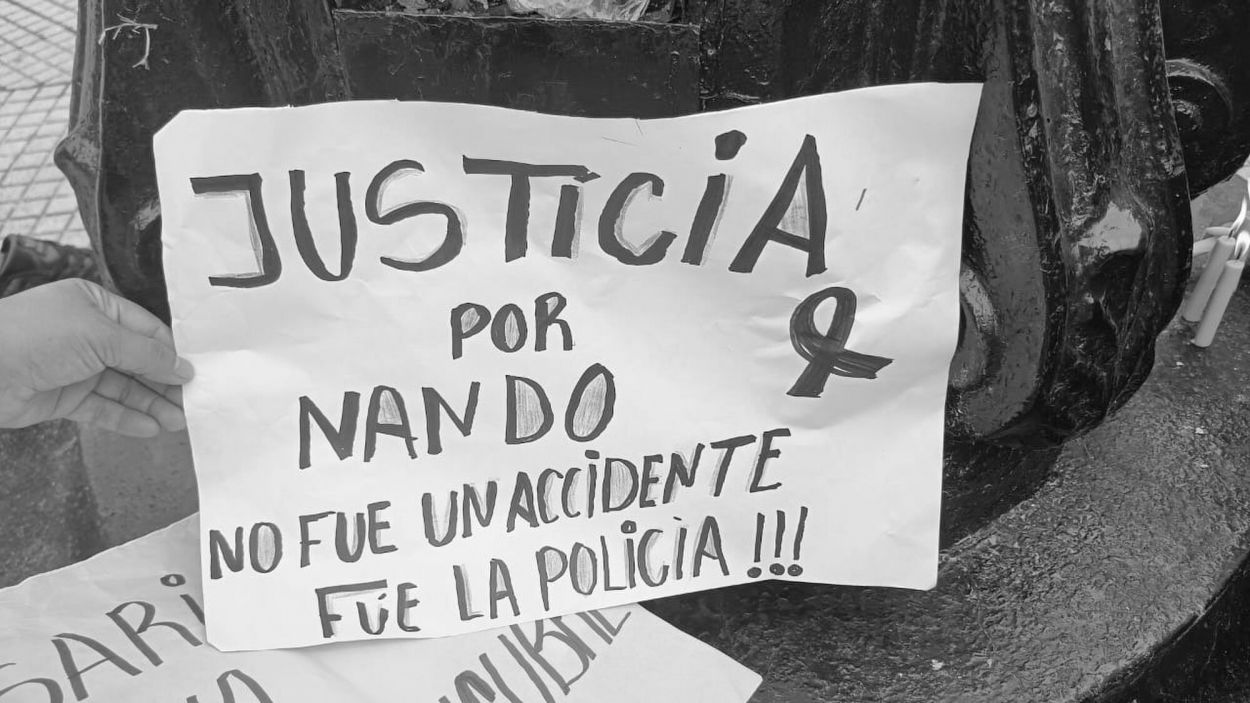 JUSTICIA
POR
NANDO
NO FUE UN ACCIDENTE
FUE LA POLICIA !!!
SARI